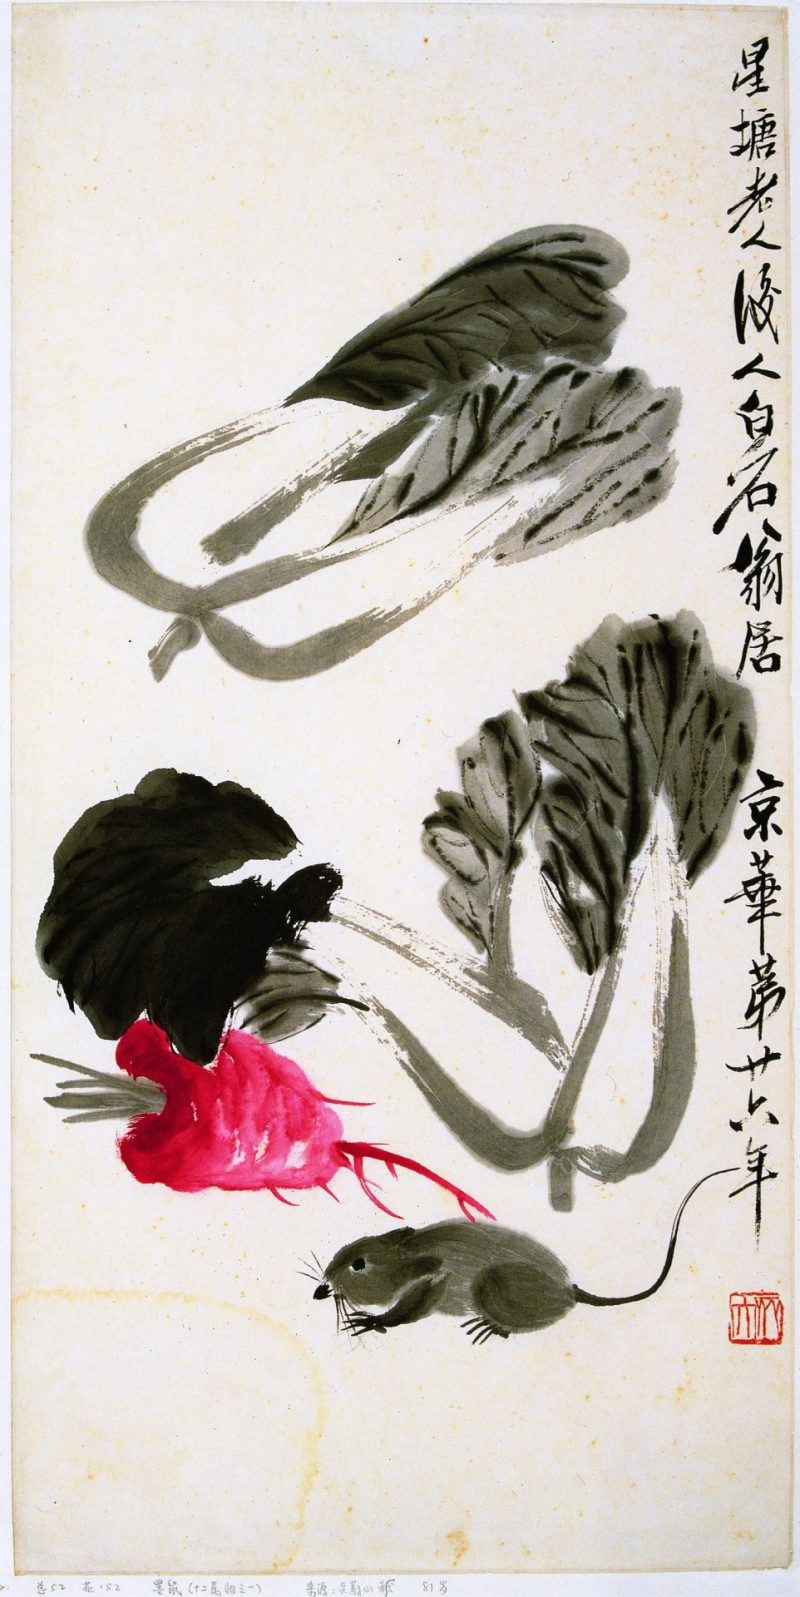 星塘老人後人白石翁居京華第廿六年
总52 花152 墨鼠(十二属相之一) 来源:关蔚山 81岁